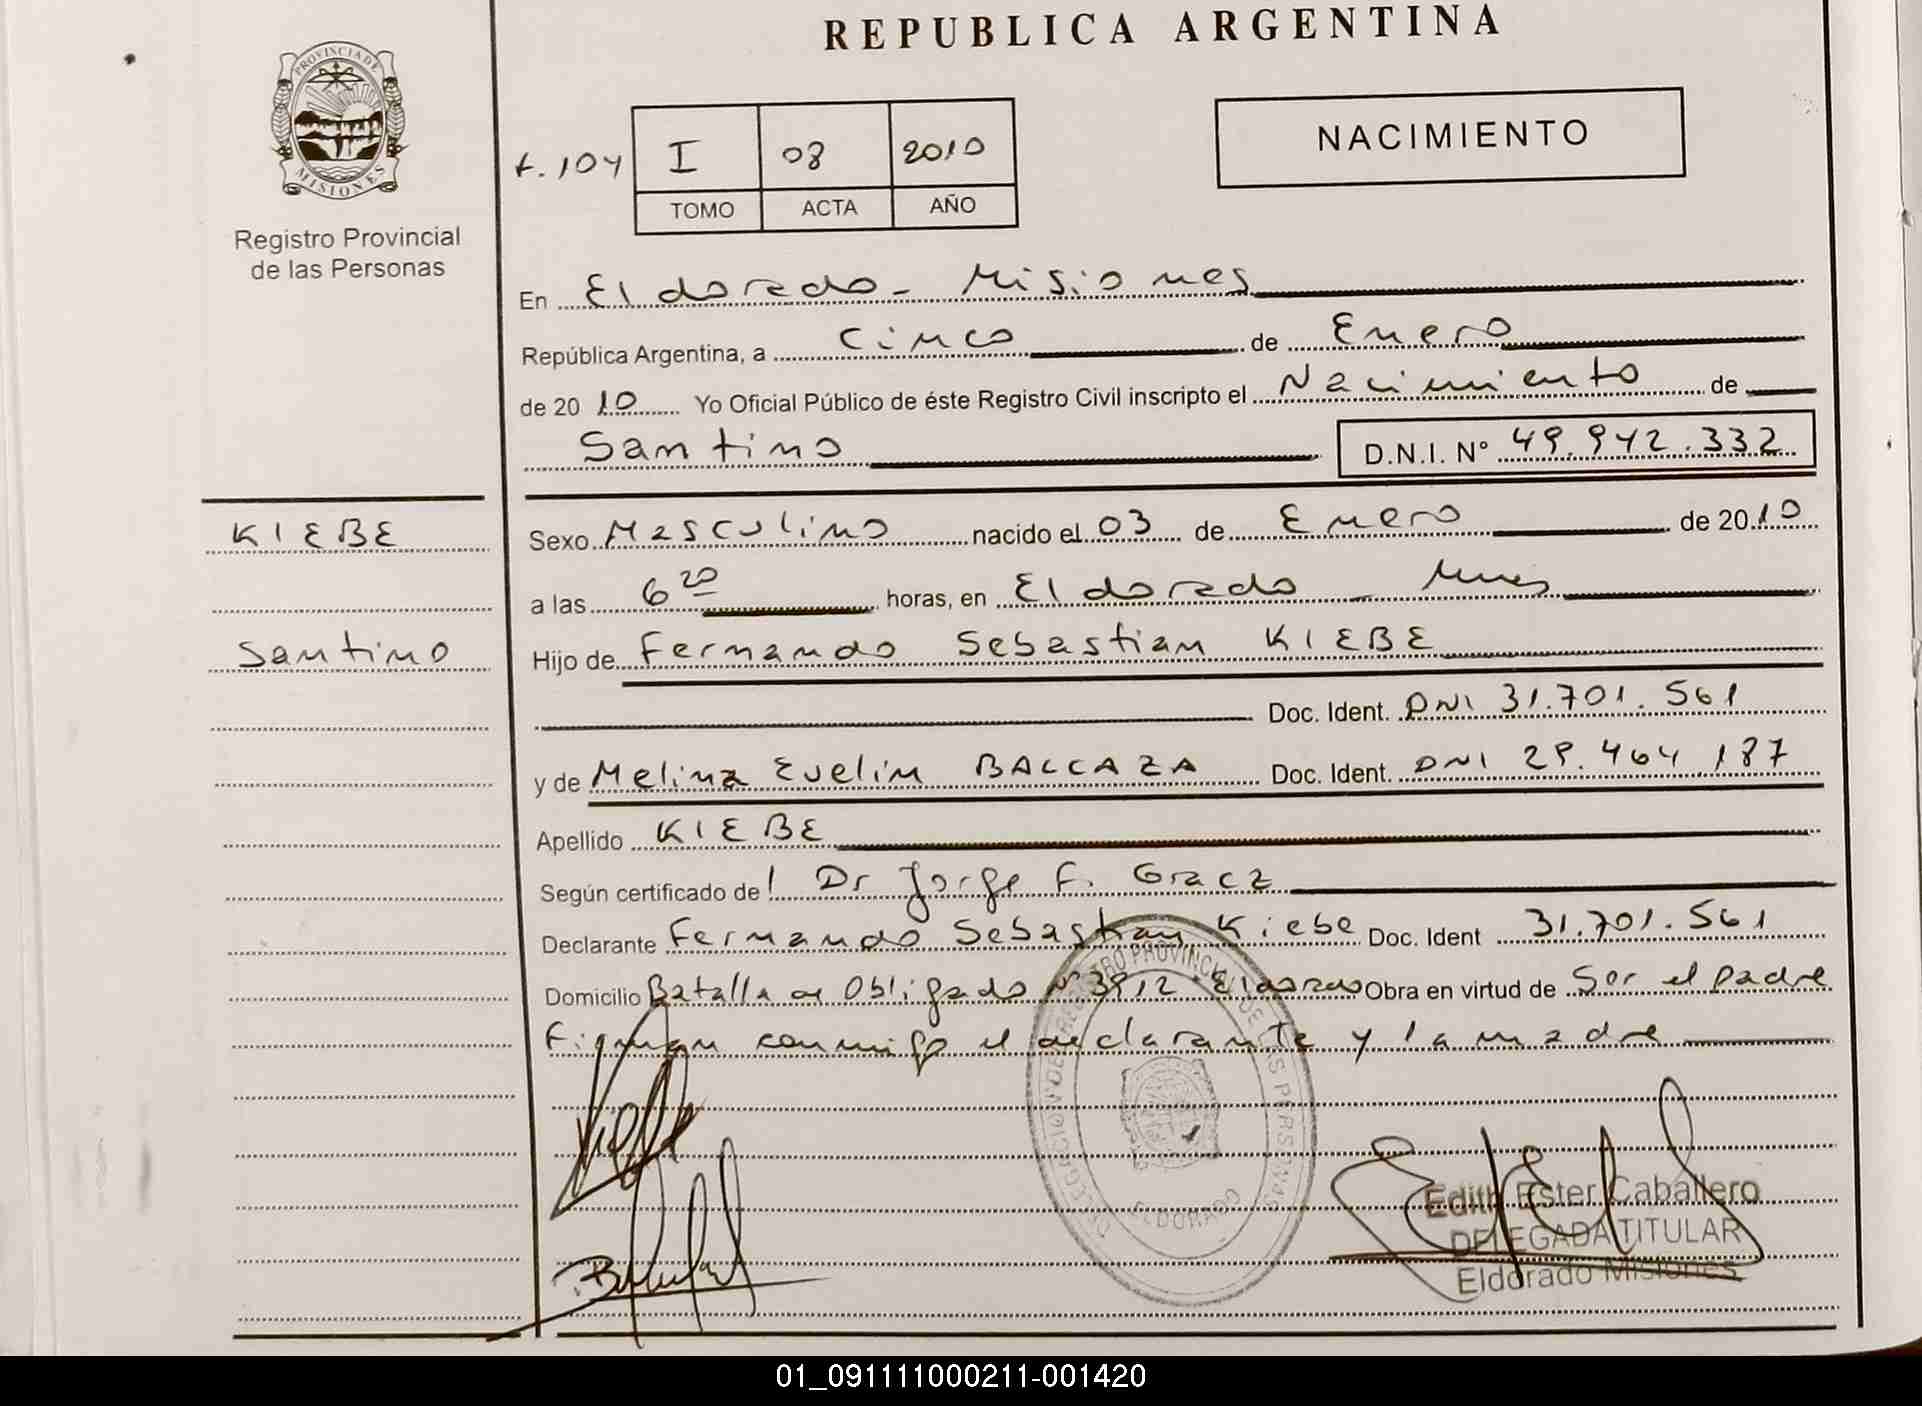 REPUBLICA ARGENTINA
PROVINCIA DE
MISIONES
Registro Provincial
de las Personas
NACIMIENTO
f. 104 I 08 2010
TOMO ACTA AÑO
En El dorado - Misiones
República Argentina, a cinco de Enero
de 2010 Yo Oficial Público de éste Registro Civil inscripto el Nacimiento de
Santino D.N.I. N° 49.942.332
KIEBE
Santino
Sexo Masculino nacido el 03 de Enero de 2010
a las 6 20 horas, en El dorado - Mnes
Hijo de Fernando Sebastian KIEBE
Doc. Ident. DNI 31.701.561
y de Melina Evelin BALCAZA Doc. Ident. DNI 29.464.187
Apellido KIEBE
Según certificado de Dr Jorge F. Gracz
Declarante Fernando Sebastian Kiebe Doc. Ident 31.701.561
Domicilio Batalla de Obligado N° 3912 - Eldorado Obra en virtud de Ser el padre
Firman conmigo el declarante y la madre
DELEGACION DEL REGISTRO PROVINCIAL DE LAS PERSONAS
ELDORADO
Edith Ester Caballero
DELEGADA TITULAR
Eldorado Misiones
01_091111000211-001420